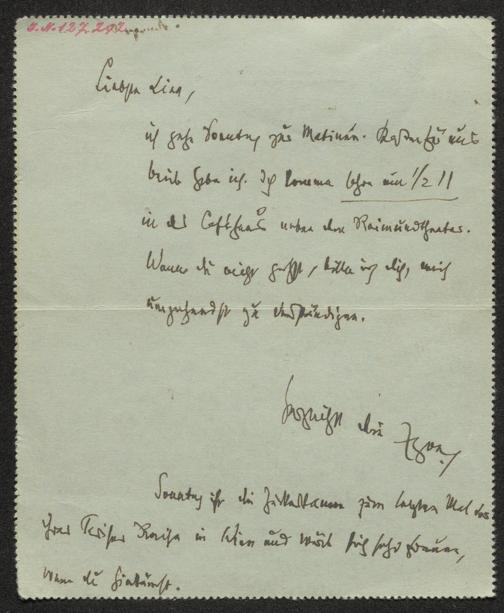 I.N. 127.292
Liebste Lina,
ich gehe Sonntag zur Matinée. Karten für uns
beide habe ich. Ich komme schon um 1/2 11
in das Caféhaus neben dem Raimundtheater.
Wenn du nicht gehst, bitte ich dich, mich
umgehendst zu verständigen.
Herzlichst dein Egon
Sonntag ist die zum letzten Mal vor
ihrer Pariser Reise in Wien und wird sich sehr freuen,
wenn du hinkommst.